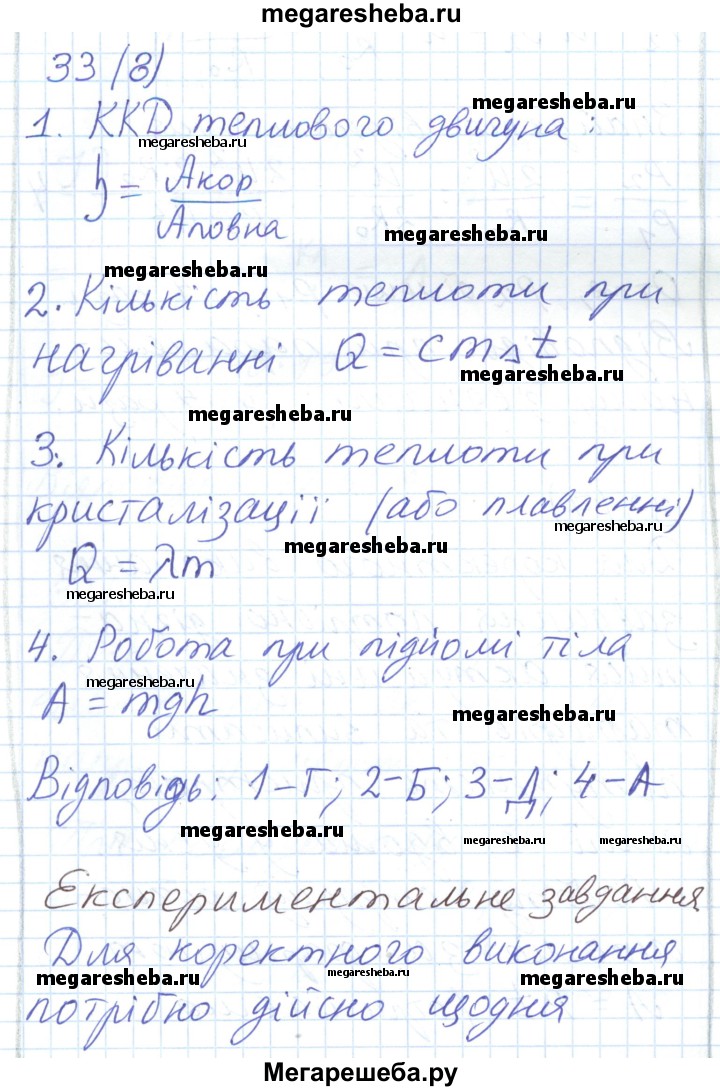 megaresheba.ru
33 (3)
megaresheba.ru
1. ККД теплового двигуна:
megaresheba.ru
η = Акор / Аповна
megaresheba.ru
megaresheba.ru
2. Кількість теплоти при
нагріванні Q = cm△t
megaresheba.ru
megaresheba.ru
3. Кількість теплоти при
кристалізації (або плавленні)
megaresheba.ru
megaresheba.ru
Q = λm
megaresheba.ru
4. Робота при підйомі тіла
megaresheba.ru
A = mgh
megaresheba.ru
Відповідь: 1-Г; 2-Б; 3-Д; 4-А
megaresheba.ru megaresheba.ru megaresheba.ru
Експериментальне завдання
Для коректного виконання
megaresheba.ru megaresheba.ru megaresheba.ru
потрібно дійсно щодня
Мегарешеба.ру